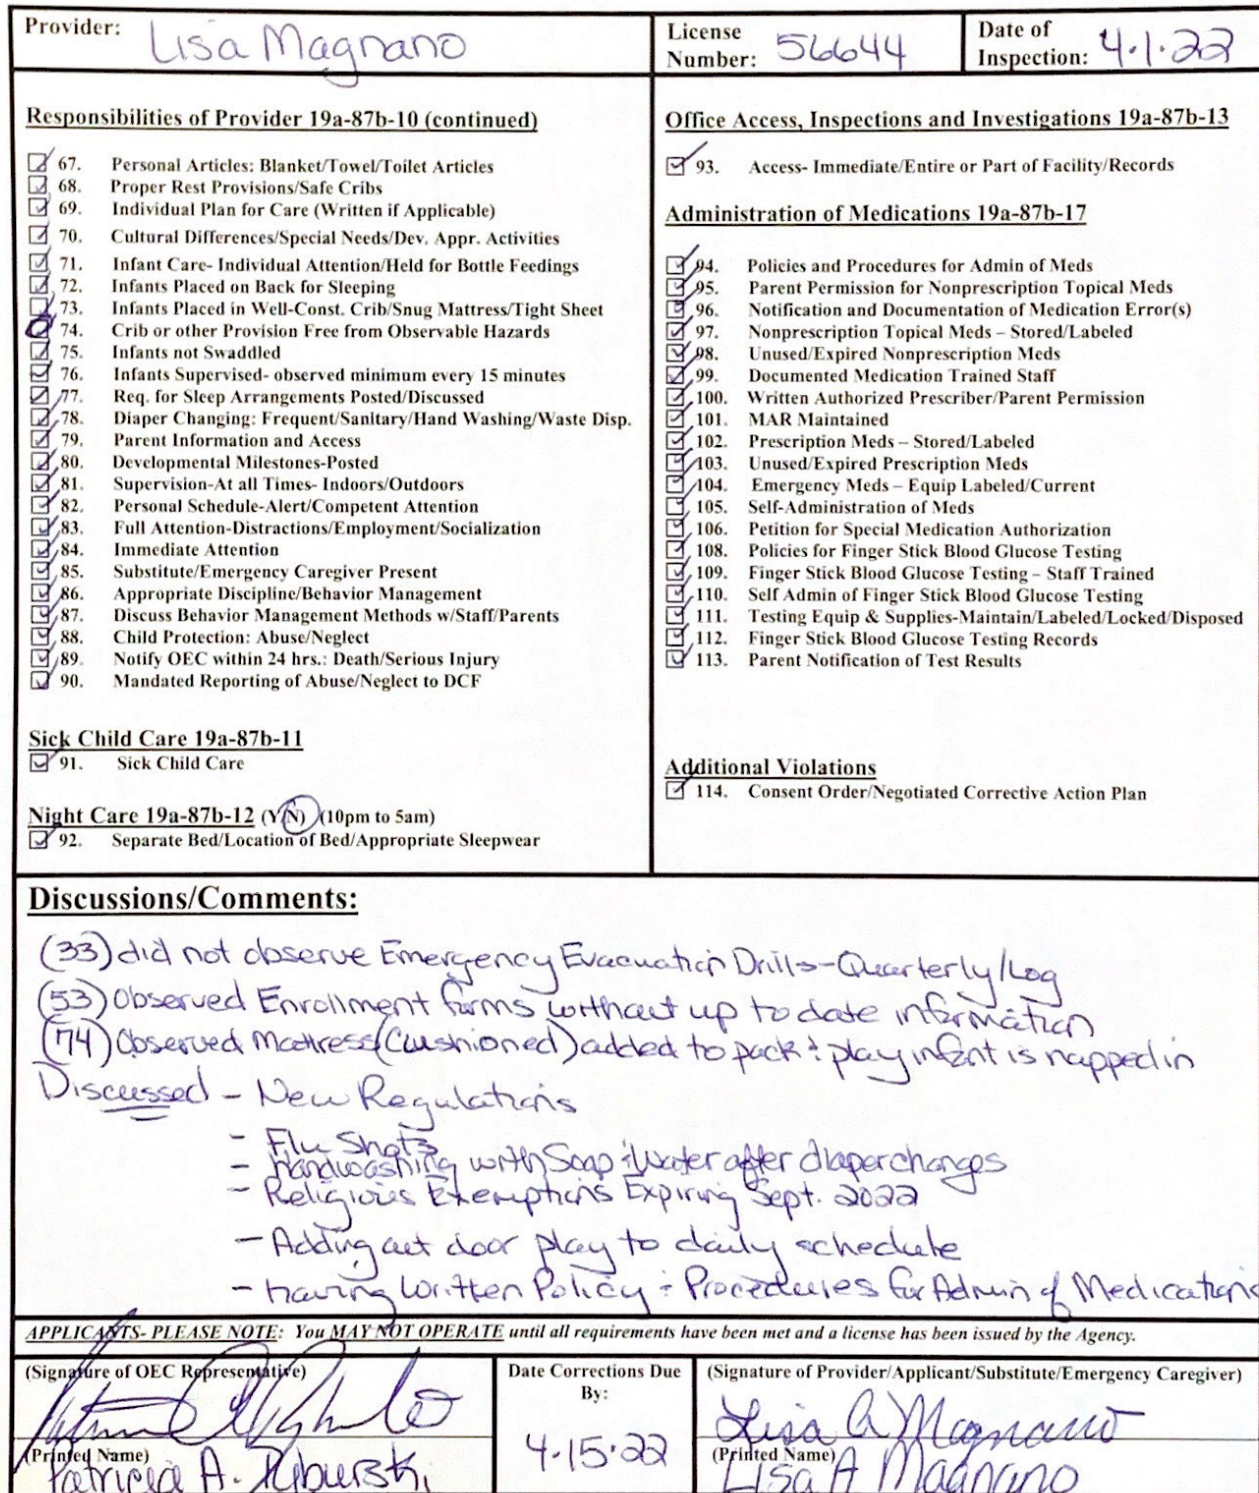 Provider: Lisa Magnano
License Number: 56644
Date of Inspection: 4.1.22
Responsibilities of Provider 19a-87b-10 (continued)
67. Personal Articles: Blanket/Towel/Toilet Articles
68. Proper Rest Provisions/Safe Cribs
69. Individual Plan for Care (Written if Applicable)
70. Cultural Differences/Special Needs/Dev. Appr. Activities
71. Infant Care- Individual Attention/Held for Bottle Feedings
72. Infants Placed on Back for Sleeping
73. Infants Placed in Well-Const. Crib/Snug Mattress/Tight Sheet
74. Crib or other Provision Free from Observable Hazards
75. Infants not Swaddled
76. Infants Supervised- observed minimum every 15 minutes
77. Req. for Sleep Arrangements Posted/Discussed
78. Diaper Changing: Frequent/Sanitary/Hand Washing/Waste Disp.
79. Parent Information and Access
80. Developmental Milestones-Posted
81. Supervision-At all Times- Indoors/Outdoors
82. Personal Schedule-Alert/Competent Attention
83. Full Attention-Distractions/Employment/Socialization
84. Immediate Attention
85. Substitute/Emergency Caregiver Present
86. Appropriate Discipline/Behavior Management
87. Discuss Behavior Management Methods w/Staff/Parents
88. Child Protection: Abuse/Neglect
89. Notify OEC within 24 hrs.: Death/Serious Injury
90. Mandated Reporting of Abuse/Neglect to DCF
Sick Child Care 19a-87b-11
91. Sick Child Care
Night Care 19a-87b-12 (Y/N) (10pm to 5am)
92. Separate Bed/Location of Bed/Appropriate Sleepwear
Office Access, Inspections and Investigations 19a-87b-13
93. Access- Immediate/Entire or Part of Facility/Records
Administration of Medications 19a-87b-17
94. Policies and Procedures for Admin of Meds
95. Parent Permission for Nonprescription Topical Meds
96. Notification and Documentation of Medication Error(s)
97. Nonprescription Topical Meds – Stored/Labeled
98. Unused/Expired Nonprescription Meds
99. Documented Medication Trained Staff
100. Written Authorized Prescriber/Parent Permission
101. MAR Maintained
102. Prescription Meds – Stored/Labeled
103. Unused/Expired Prescription Meds
104. Emergency Meds – Equip Labeled/Current
105. Self-Administration of Meds
106. Petition for Special Medication Authorization
108. Policies for Finger Stick Blood Glucose Testing
109. Finger Stick Blood Glucose Testing – Staff Trained
110. Self Admin of Finger Stick Blood Glucose Testing
111. Testing Equip & Supplies-Maintain/Labeled/Locked/Disposed
112. Finger Stick Blood Glucose Testing Records
113. Parent Notification of Test Results
Additional Violations
114. Consent Order/Negotiated Corrective Action Plan
Discussions/Comments:
(33) did not observe Emergency Evacuation Drills-Quarterly/Log
(53) Observed Enrollment forms without up to date information
(74) Observed Mattress (Cushioned) added to pack & play infant is napped in
Discussed - New Regulations
- Flu Shots
- handwashing with Soap & Water after diaper changes
- Religious Exemptions Expiring Sept. 2022
- Adding out door play to daily schedule
- having Written Policy & Procedures for Admin of Medications
APPLICANTS- PLEASE NOTE: You MAY NOT OPERATE until all requirements have been met and a license has been issued by the Agency.
(Signature of OEC Representative)
(Printed Name)
Patricia A.
Date Corrections Due By:
4.15.22
(Signature of Provider/Applicant/Substitute/Emergency Caregiver)
Lisa A Magnano
(Printed Name)
Lisa A Magnano